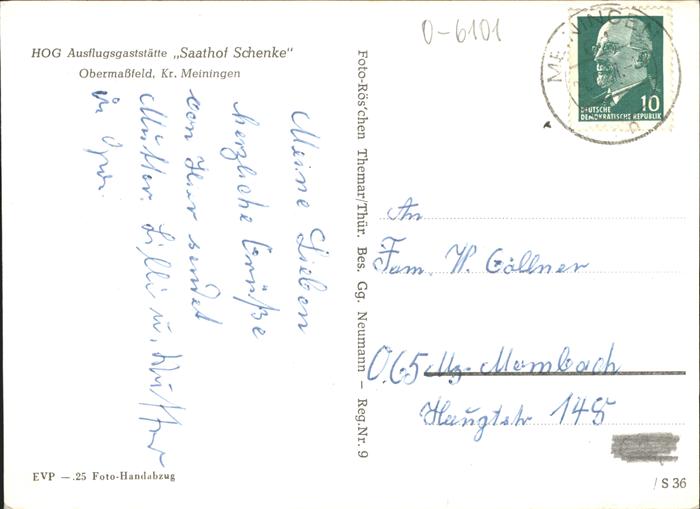 HOG Ausflugsgaststätte „Saathof Schenke"
Obermaßfeld, Kr. Meiningen
Meine Lieben
herzliche Grüße
von hier sendet
Mutter. Lilli u.
u Opa.
EVP —.25 Foto-Handabzug
Foto-Rös'chen Themar/Thür. Bes. Gg. Neumann – Reg.Nr. 9
0-6101
MEININGEN
10
DEUTSCHE
DEMOKRATISCHE REPUBLIK
An
Fam. W. Göllner
065 Mz-Mombach
Hauptstr 145
/ S 36